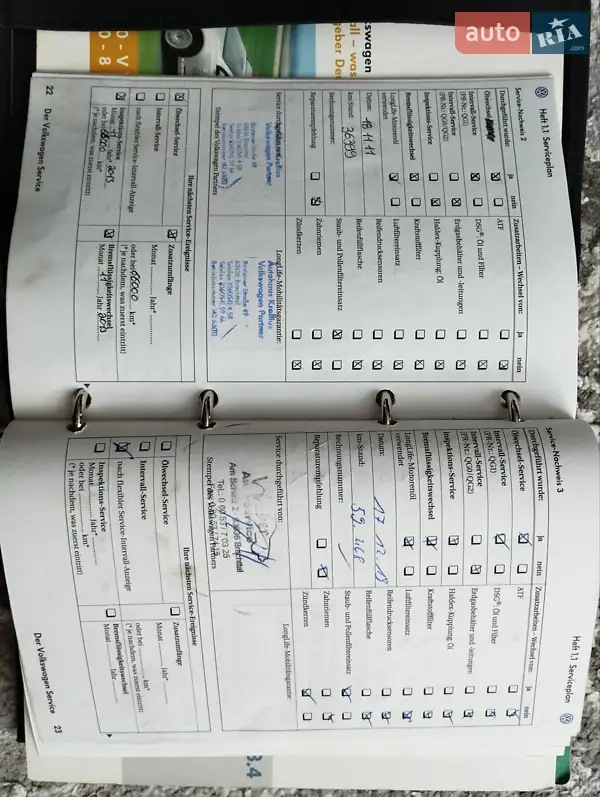 auto RIA .com
swagen
all – was
geber De
Heft 1.1 Serviceplan
Service-Nachweis 2
Durchgeführt wurde: ja nein
Ölwechsel-Service
(PR-Nr. QG0)
Intervall-Service
(PR-Nr. QG1)
Intervall-Service
(PR-Nr. QG0/QG2)
Inspektions-Service
Bremsflüssigkeitswechsel
LongLife-Motorenöl
verwendet
Datum: 18.11.11
km-Stand: 36399
Rechnungsnummer:
Reparaturempfehlung
Zusatzarbeiten – Wechsel von: ja nein
ATF
DSG®: Öl und Filter
Erdgasbehälter und -leitungen
Haldex-Kupplung: Öl
Kraftstofffilter
Luftfiltereinsatz
Reifendrucksensoren
Reifenfüllflasche
Staub- und Pollenfiltereinsatz
Zahnriemen
Zündkerzen
Service durchgeführt von:
Volkswagen Partner
Stempel des Volkswagen Partners
LongLife-Mobilitätsgarantie:
Volkswagen Partner
Ihre nächsten Service-Ereignisse
Ölwechsel-Service
Intervall-Service
nach flexibler Service-Intervall-Anzeige
Inspektions-Service
Monat 11 Jahr 2013
oder bei 66000 km*
(* je nachdem, was zuerst eintritt)
Zusatzumfänge
Monat Jahr
oder bei 66000 km*
(* je nachdem, was zuerst eintritt)
Bremsflüssigkeitswechsel
Monat 11 Jahr 2013
22 Der Volkswagen Service
Heft 1.1 Serviceplan
Service-Nachweis 3
Durchgeführt wurde: ja nein
Ölwechsel-Service
(PR-Nr. QG0)
Intervall-Service
(PR-Nr. QG1)
Intervall-Service
(PR-Nr. QG0/QG2)
Inspektions-Service
Bremsflüssigkeitswechsel
LongLife-Motorenöl
verwendet
Datum: 17 12 13
km-Stand: 59 468
Rechnungsnummer:
Reparaturempfehlung
Zusatzarbeiten – Wechsel von: ja nein
ATF
DSG®: Öl und Filter
Erdgasbehälter und -leitungen
Haldex-Kupplung: Öl
Kraftstofffilter
Luftfiltereinsatz
Reifendrucksensoren
Reifenfüllflasche
Staub- und Pollenfiltereinsatz
Zahnriemen
Zündkerzen
Service durchgeführt von:
Stempel des Volkswagen Partners
LongLife-Mobilitätsgarantie:
Ihre nächsten Service-Ereignisse
Ölwechsel-Service
Intervall-Service
nach flexibler Service-Intervall-Anzeige
Inspektions-Service
Monat Jahr
oder bei km*
(* je nachdem, was zuerst eintritt)
Zusatzumfänge
oder bei km*
(* je nachdem, was zuerst eintritt)
Bremsflüssigkeitswechsel
Monat Jahr
Der Volkswagen Service 23
3.4